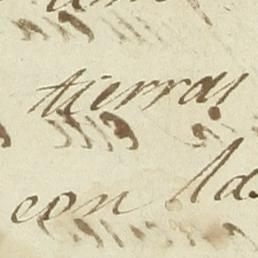 tierras
con la